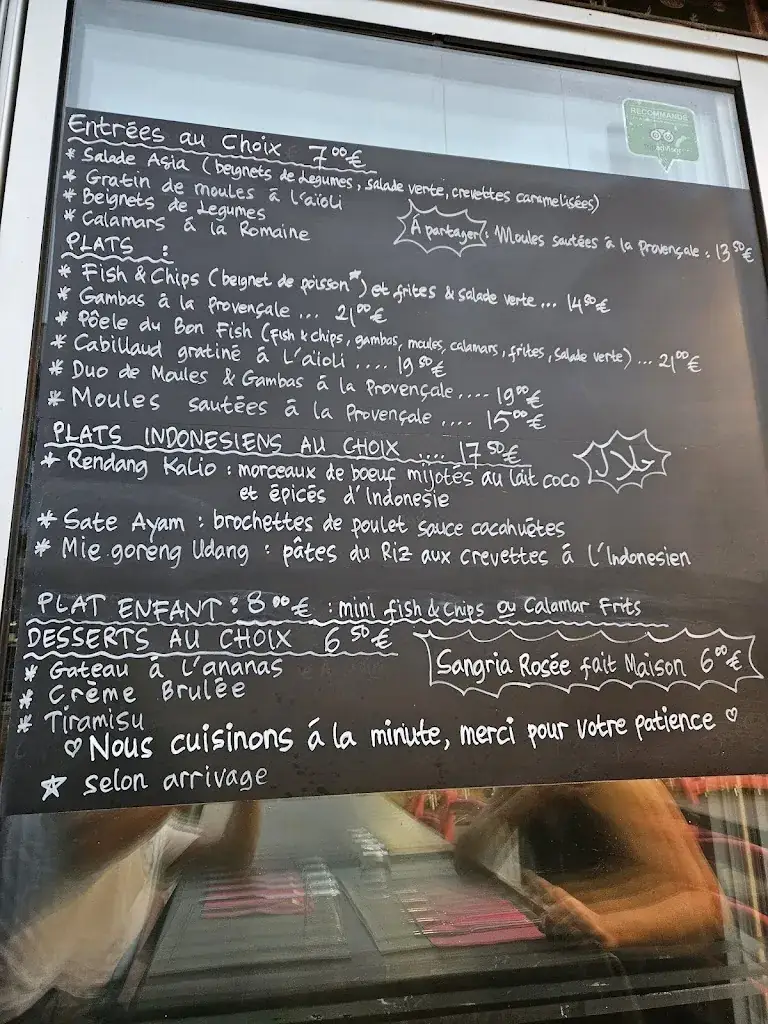 RECOMMANDÉ
Entrées au Choix 7⁰⁰€
* Salade Asia (beignets de Legumes, salade verte, crevettes caramelisées)
* Gratin de moules à l'aïoli
* Beignets de Legumes
* Calamars à la Romaine
À partager : Moules sautées à la Provençale : 13⁵⁰€
PLATS :
* Fish & Chips (beignet de poisson*) et frites & salade verte ... 14⁸⁰€
* Gambas à la Provençale ... 21⁰⁰€
* Pôele du Bon Fish (fish & chips, gambas, moules, calamars, frites, salade verte) ... 21⁰⁰€
* Cabillaud gratiné à L'aïoli .... 19⁵⁰€
* Duo de Moules & Gambas à la Provençale .... 19⁰⁰€
* Moules sautées à la Provençale .... 15⁰⁰€
PLATS INDONESIENS AU CHOIX .... 17⁵⁰€
حلال
* Rendang Kalio : morceaux de boeuf mijotés au lait coco
et épicés d'Indonesie
* Sate Ayam : brochettes de poulet sauce cacahuétes
* Mie goreng Udang : pâtes du Riz aux crevettes á l'Indonesien
PLAT ENFANT : 8⁰⁰€ : mini fish & chips ou Calamar Frits
DESSERTS AU CHOIX 6⁵⁰€
* Gateau à l'ananas
* Crème Brulée
* Tiramisu
Sangria Rosée fait Maison 6⁰⁰€
♡ Nous cuisinons á la minute, merci pour votre patience ♡
☆ selon arrivage